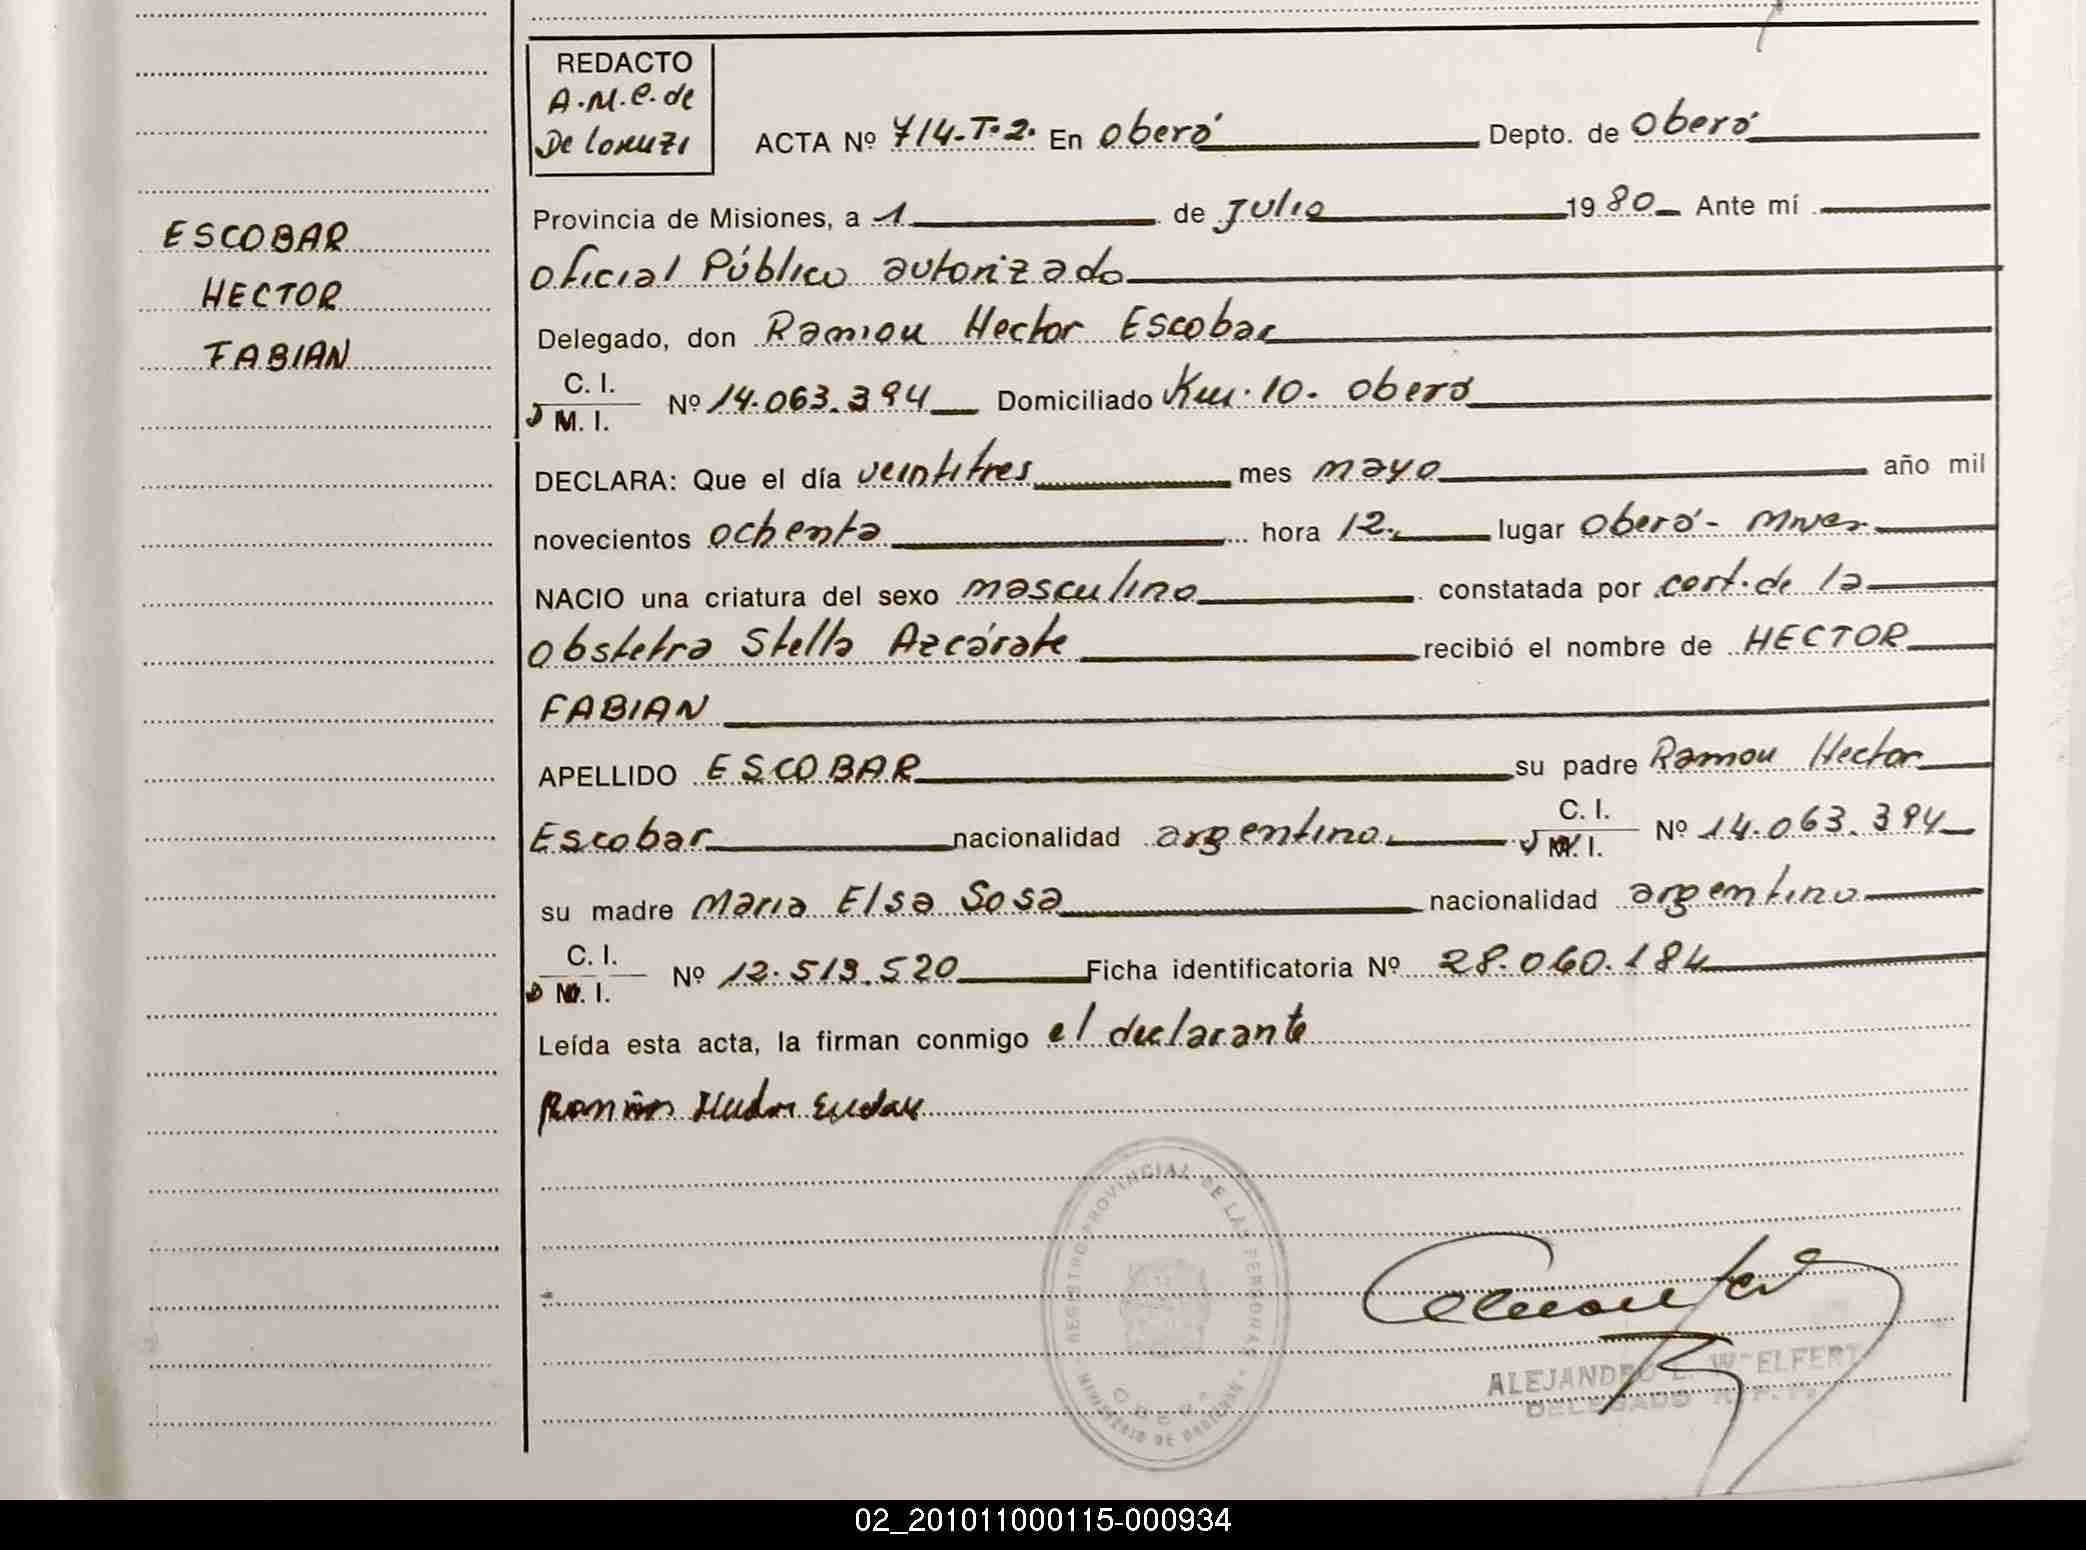 REDACTO
A.M.C. de
De Lorenzi
ACTA Nº 714-T-2. En Oberá Depto. de Oberá
Provincia de Misiones, a 1 de Julio 1980 Ante mí
Oficial Público autorizado
Delegado, don Ramon Hector Escobar
C. I.
D M. I. Nº 14.063.394 Domiciliado Km. 10. Oberá
DECLARA: Que el día veintitres mes mayo año mil
novecientos ochenta hora 12. lugar Oberá - Mnes.
NACIO una criatura del sexo masculino constatada por cert. de la
Obstetra Stella Azcárate recibió el nombre de HECTOR
FABIAN
APELLIDO ESCOBAR su padre Ramon Hector
Escobar nacionalidad argentino. C. I. M. I. Nº 14.063.394
su madre Maria Elsa Sosa nacionalidad argentina
C. I.
D N. I. Nº 12.513.520 Ficha identificatoria Nº 28.060.184
Leída esta acta, la firman conmigo el declarante
ESCOBAR
HECTOR
FABIAN
REGISTRO PROVINCIAL DE LAS PERSONAS
MINISTERIO DE GOBIERNO
OBERA
ALEJANDRO E. W ELFERT
DELEGADO R. P. P.
02_201011000115-000934